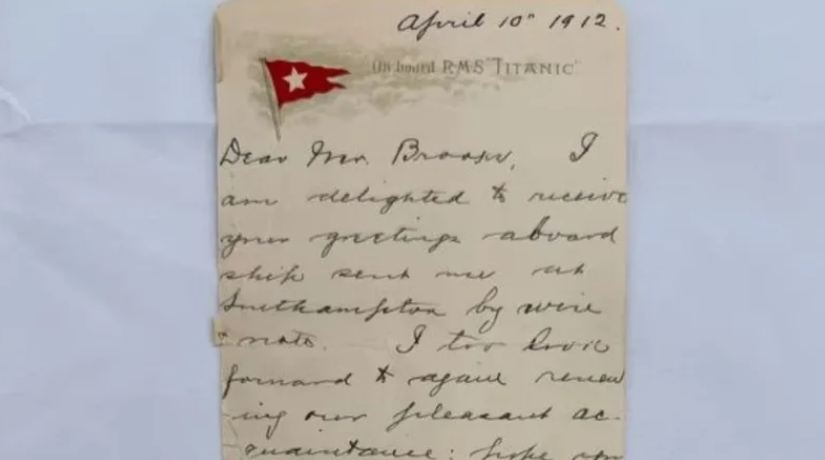 April 10" 1912.
On board RMS "TITANIC"
Dear Mr. Brooks, I
am delighted to receive
your greetings aboard
ship sent me at
Southampton by wire
& note. I too look
forward to again renew
-ing our pleasant ac-
quaintance; hope you